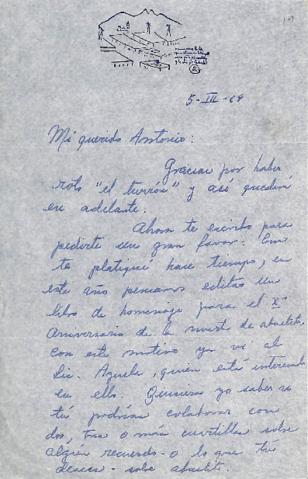 5-III-69
Mi querido Antonio:
Gracias por haber
roto "el turrón" y así quedará
en adelante.
Ahora te escribo para
pedirte un gran favor. Como
te platiqué hace tiempo, en
este año pensamos editar un
libro de homenaje para el Xº
Aniversario de la muerte de abuelito.
Con este motivo ya vi al
Lic. Azuela, quien está interesado
en ello. Quisiera yo saber si
tú podrías colaborar con
dos, tres o más cuartillas sobre
algún recuerdo - o lo que tú
desees - sobre abuelito.